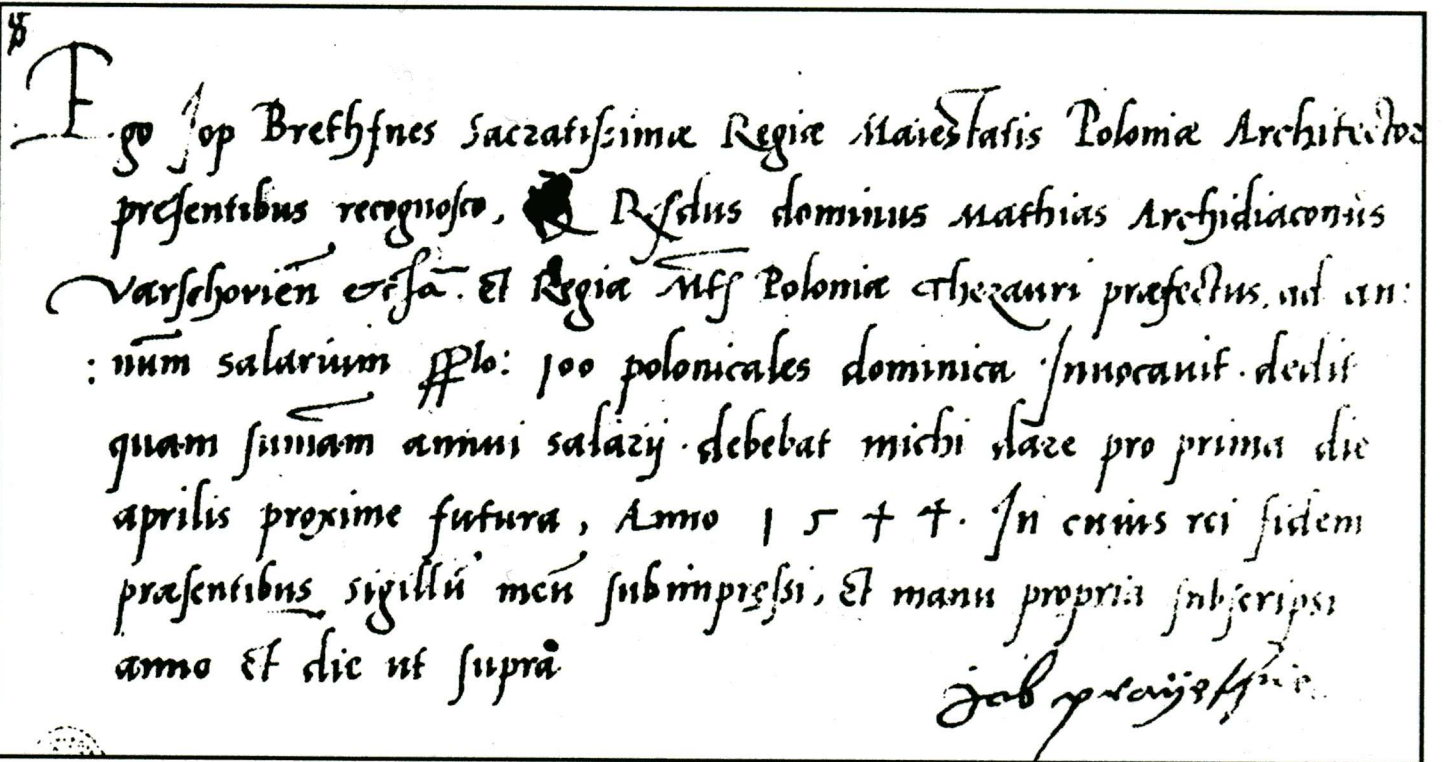 Ego Jop Brethfnes Sacratissimæ Regiæ Maiestatis Poloniæ Architector
presentibus recognosco, Rdus dominus Mathias Archidiaconus
Varschovien̄ Et Regiæ Mts Poloniæ Thezauri præfectus, ad an:
:nūm salarium 100 polonicales dominica Invocavit. dedit
quam sum̄am annui salarij. debebat michi dare pro prima die
aprilis proxime futura, Anno 1544. In cuius rei fidem
præsentibus sigillū meū subimpressi, Et manu propria subscripsi
anno Et die ut supra
job